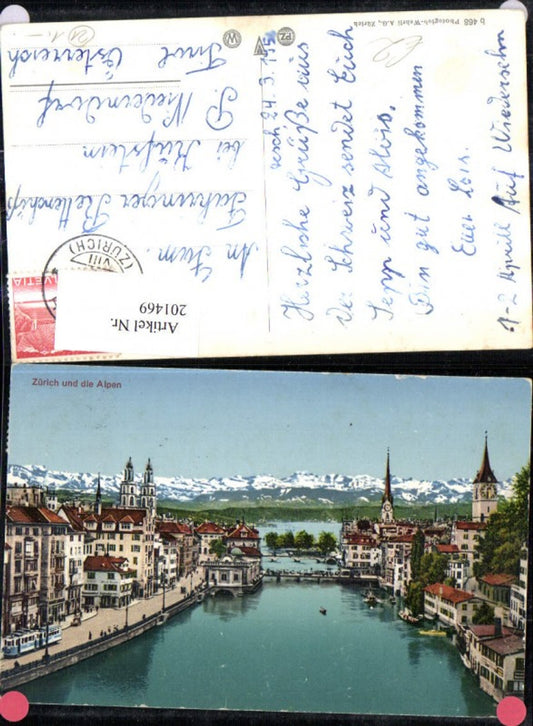 b 468 Photoglob-Wehrli A.G., Zürich
24. 3. 195
Herzliche Grüße aus
der Schweiz sendet Euch
Sepp und Alois.
Bin gut angekommen
Euer Lois.
1-2 April Auf Wiedersehn
An Fam.
bei Kufstein
P. Niederndorf
Tirol
Österreich
VIII
(ZÜRICH)
HELVETIA
Artikel Nr.
201469
Zürich und die Alpen